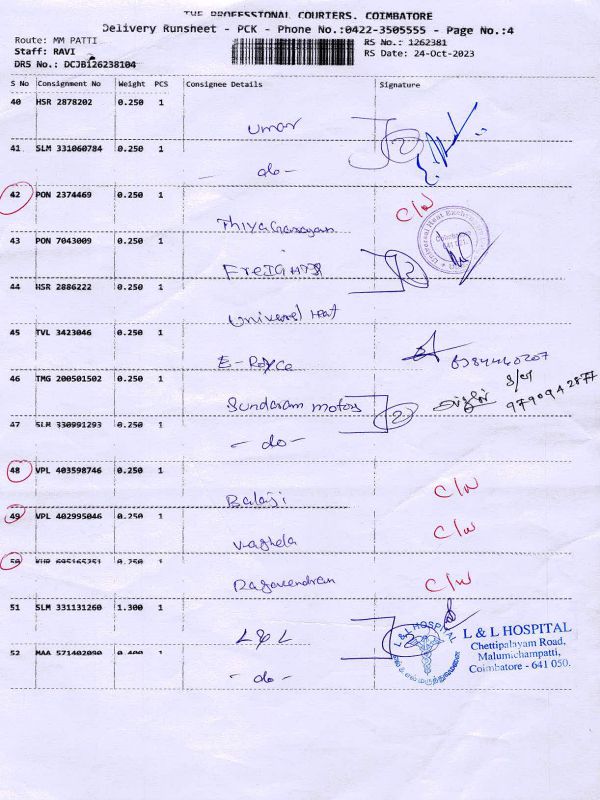 THE PROFESSIONAL COURIERS. COIMBATORE
Delivery Runsheet - PCK - Phone No.:0422-3505555 - Page No.:4
Route: MM PATTI
RS No.: 1262381
Staff: RAVI
RS Date: 24-Oct-2023
DRS No.: DCJB126238104
S No Consignment No Weight PCS Consignee Details Signature
40 HSR 2878202 0.250 1
Umar
2
41 SLM 331060784 0.250 1
- do -
42 PON 2374469 0.250 1
C/W
Thiyagarayan
43 PON 7043009 0.250 1
FreIGHTS
2
44 HSR 2886222 0.250 1
Universal Heat
45 TVL 3423046 0.250 1
E-Royce
46 TMG 200501502 0.250 1
9790942877
Sundaram motors
2
47 SLM 330991293 0.250 1
- do -
48 VPL 403598746 0.250 1
C/W
Balaji
49 VPL 402995046 0.250 1
C/W
Vaghela
50 0.250 1
C/W
Ragavendran
51 SLM 331131260 1.300 1
L & L
2
L & L HOSPITAL
L & L HOSPITAL
Chettipalayam Road,
Malumichampatti,
Coimbatore - 641 050.
52 MAA 571402090 0.400 1
- do -